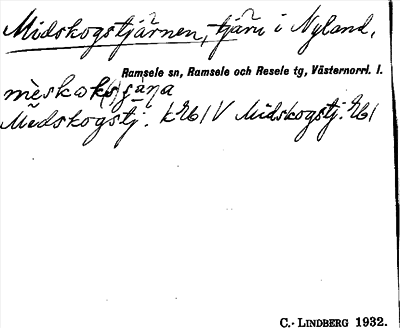 Midskogstjärnen, tjärn i Nyland,
Ramsele sn, Ramsele och Resele tg, Västernorrl. l.
Midskogstj. kRb 1 V Midskogstj. Rb 1
C. LINDBERG 1932.